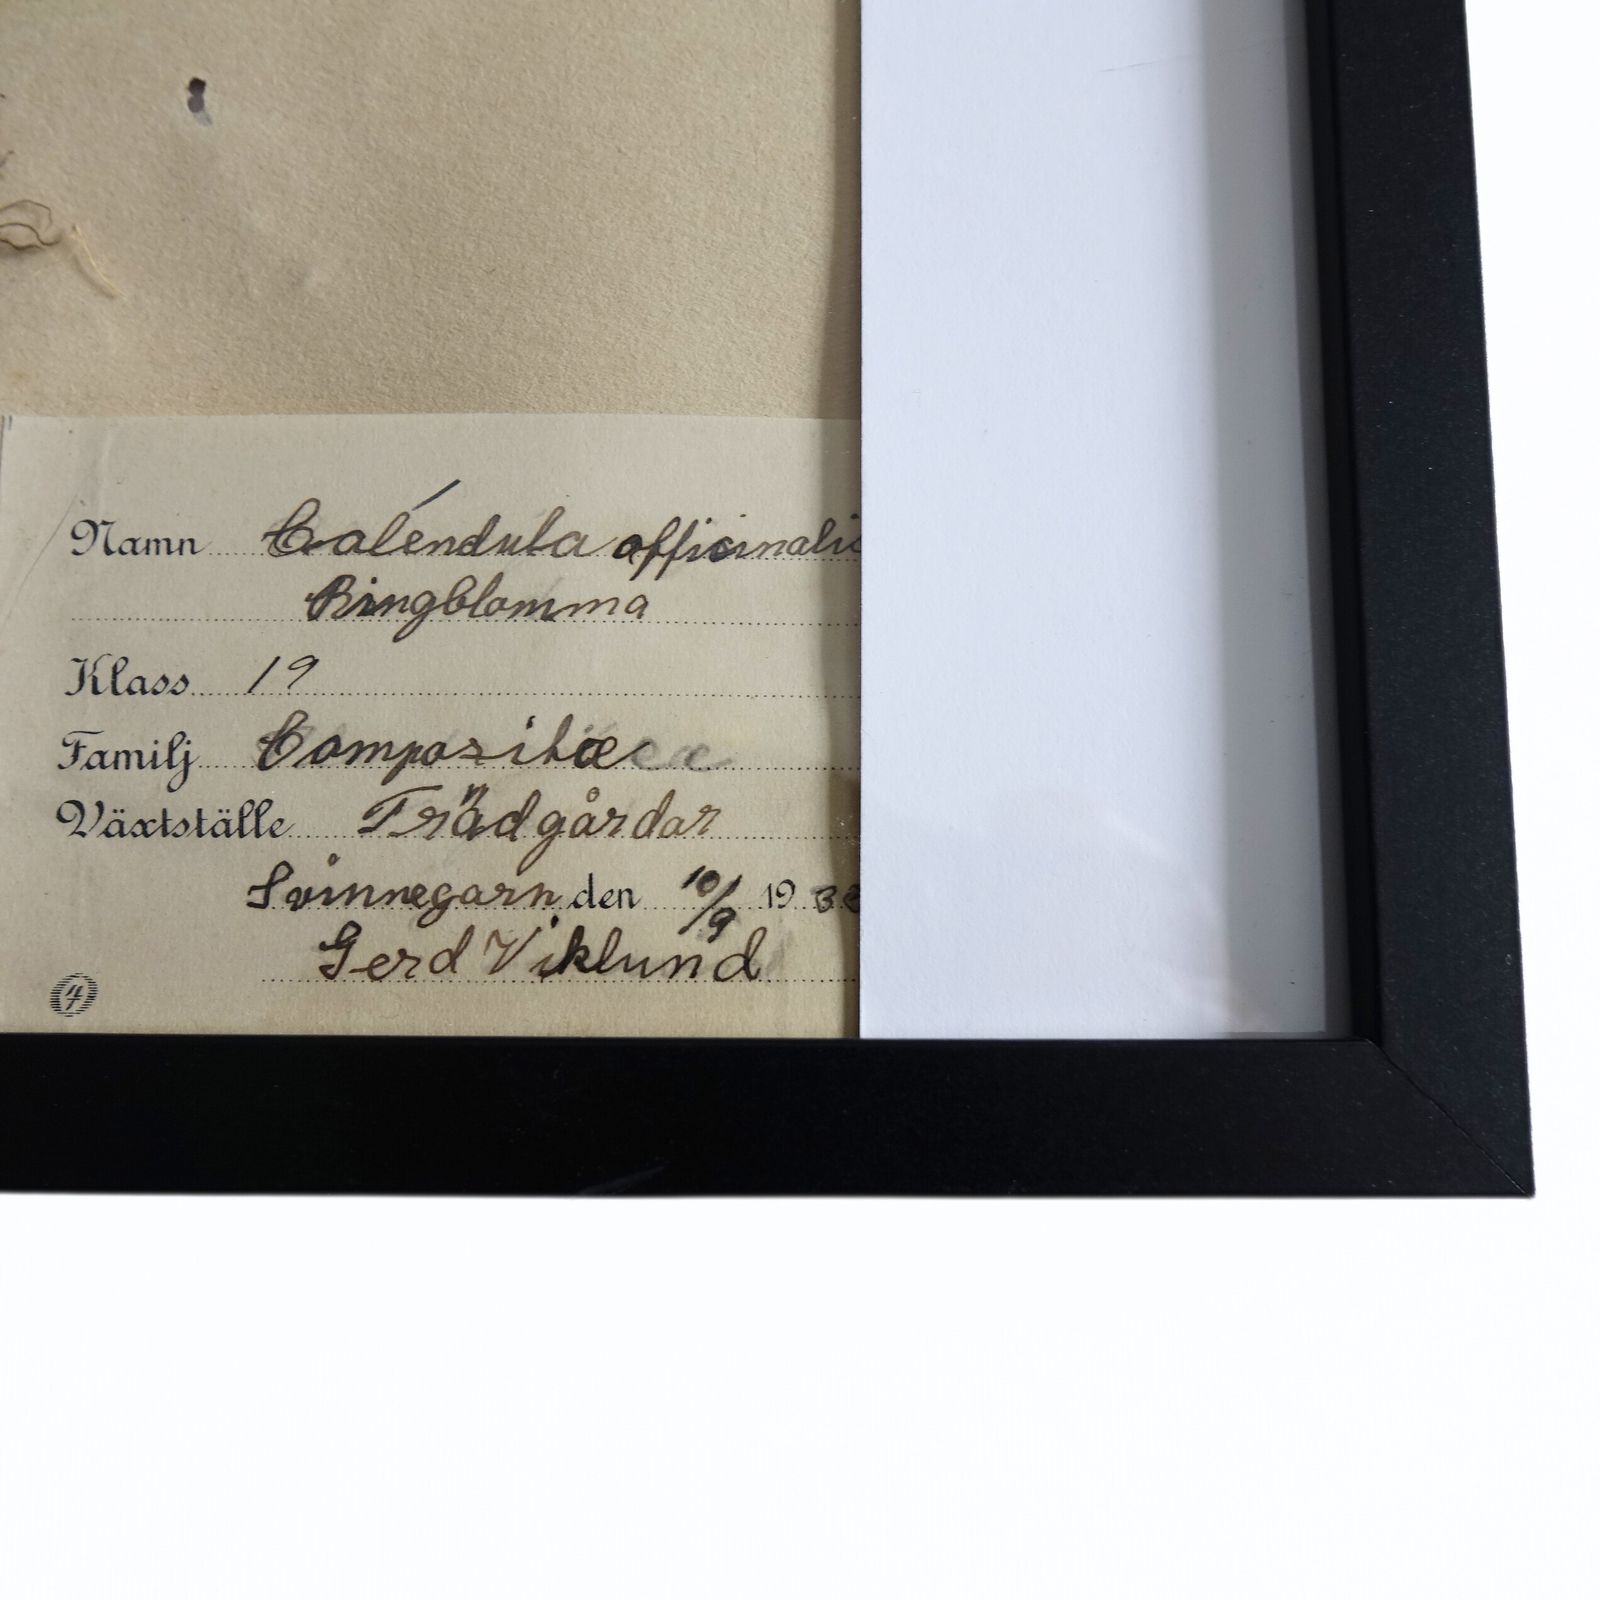 Namn Caléndula officinalis
Ringblomma
Klass 19
Familj Compositæ
Växtställe Trädgårdar
Svinnegarn den 10/9 1933
Gerd Viklund
4